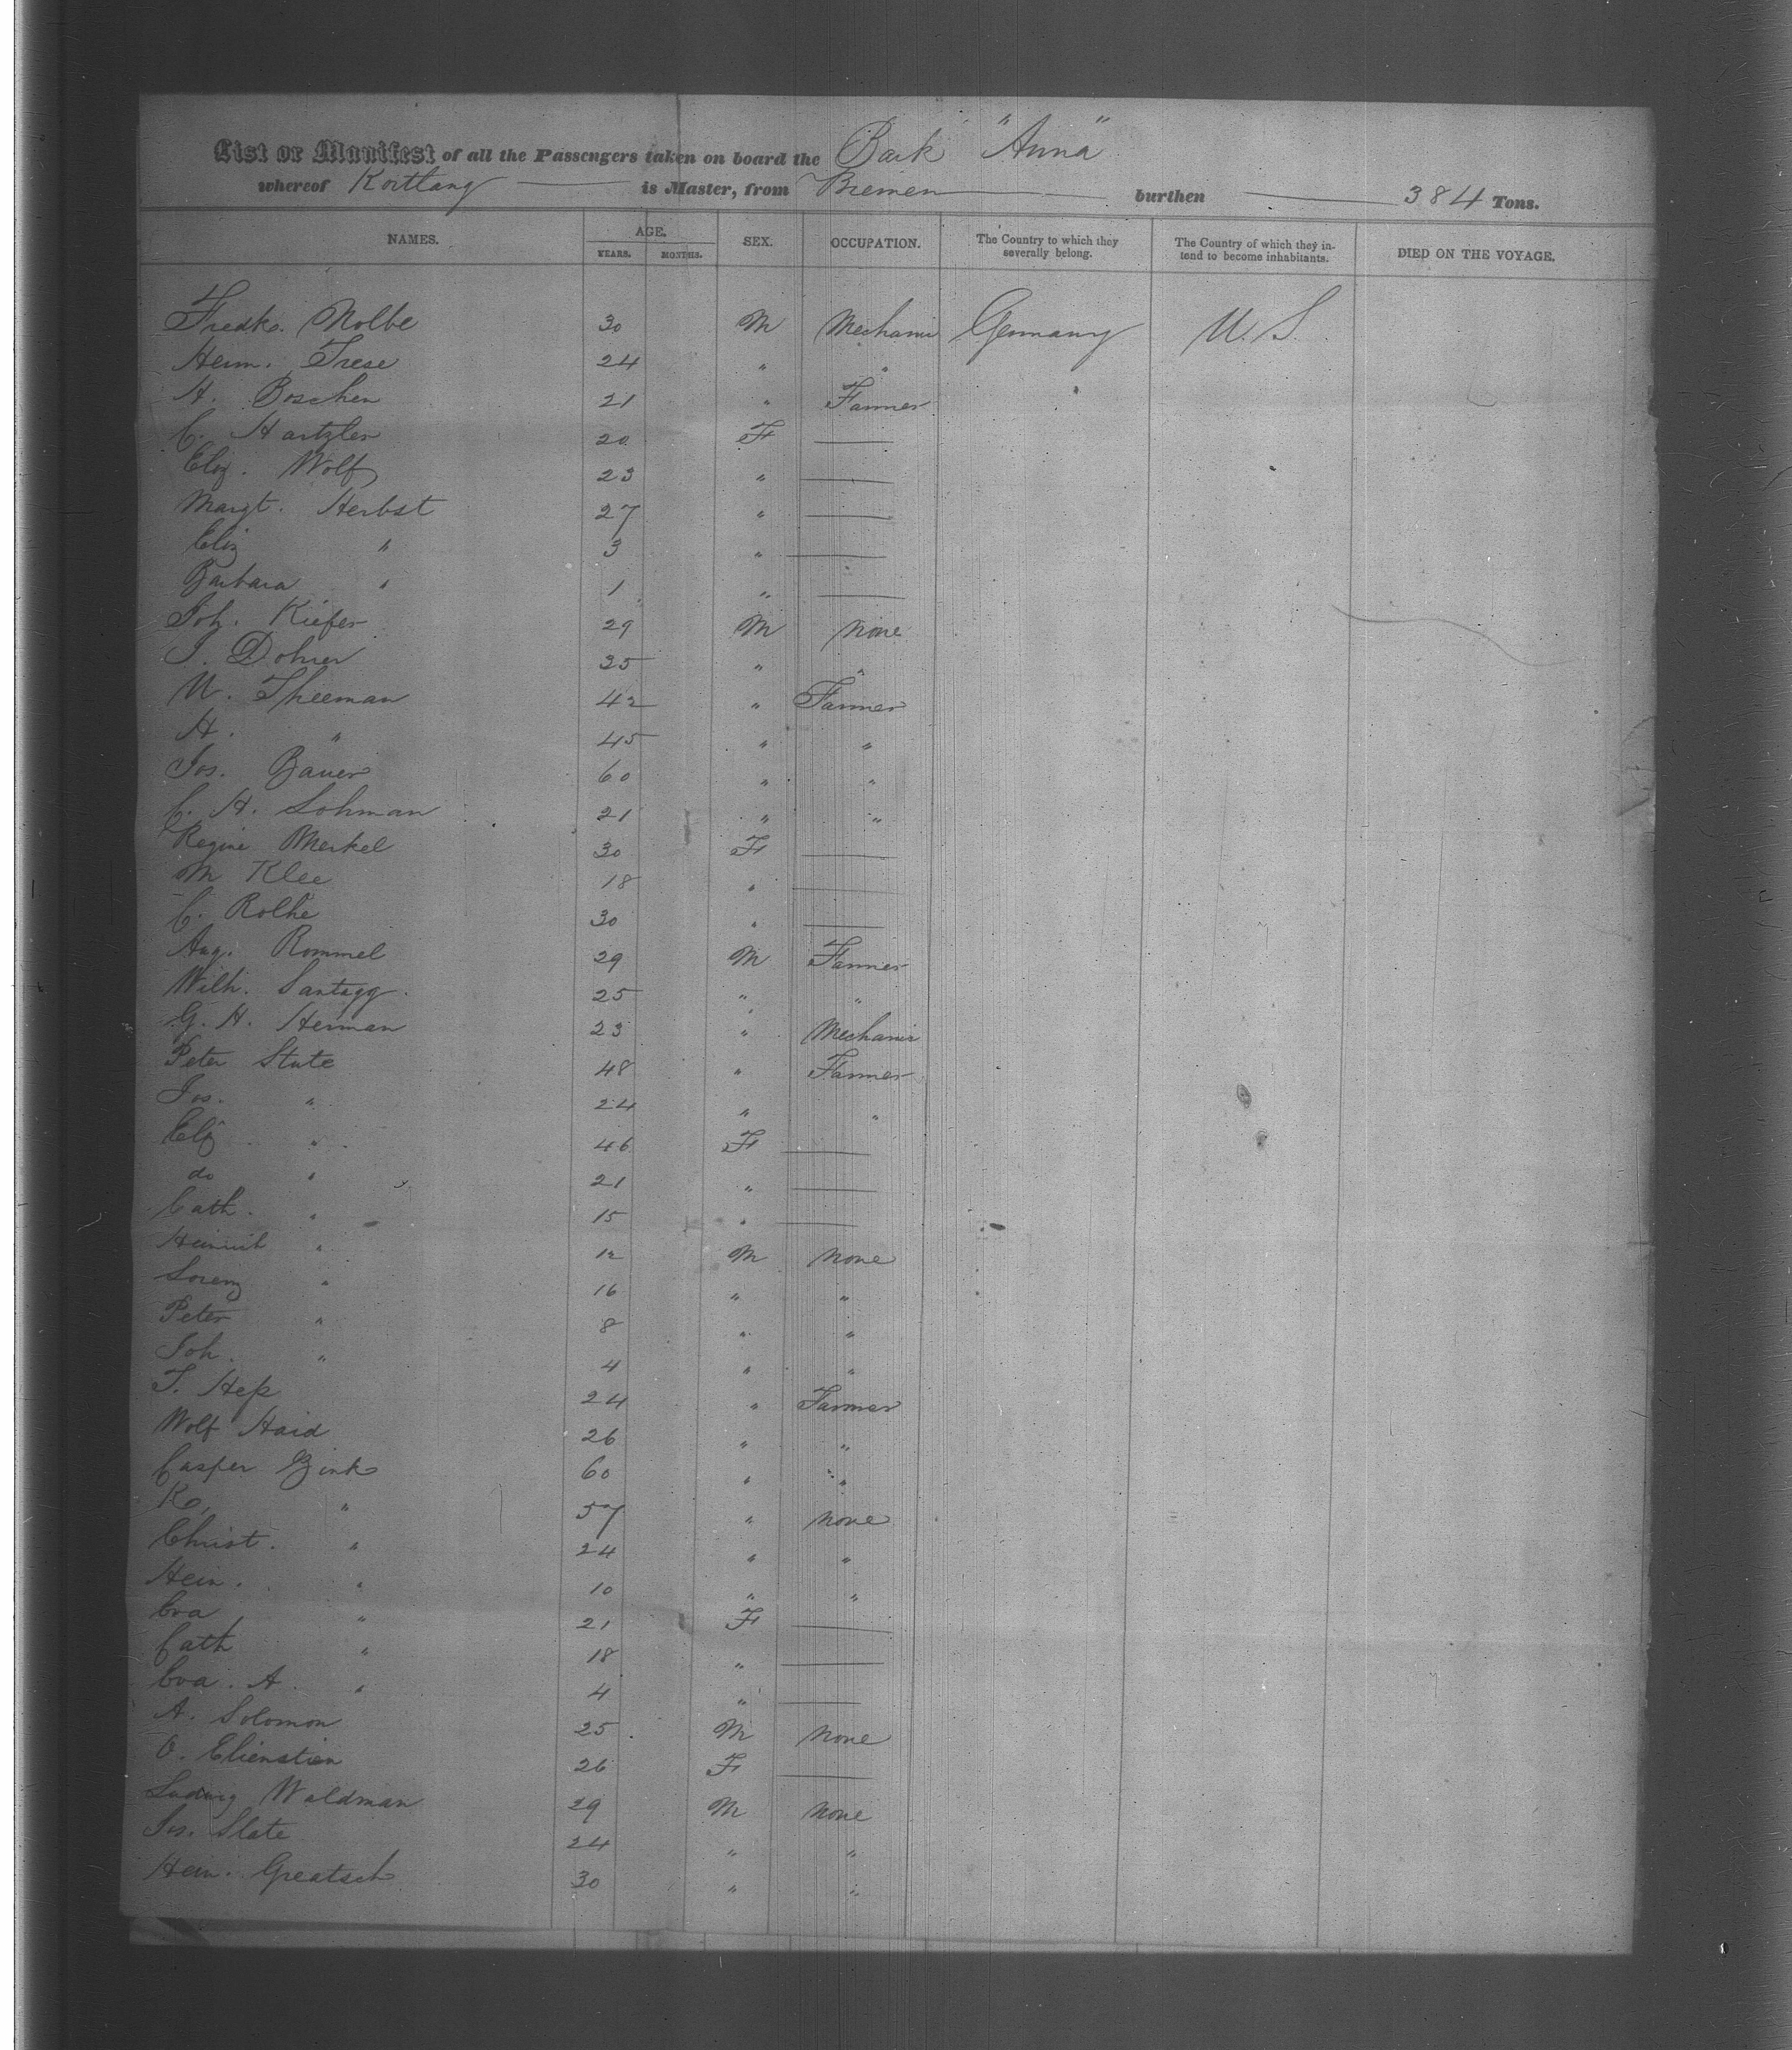 List or Manifest of all the Passengers taken on board the Bark "Anna"
whereof Koitlang is Master, from Bremen burthen 384 Tons.
NAMES. AGE. YEARS. MONTHS. SEX. OCCUPATION. The Country to which they severally belong. The Country of which they intend to become inhabitants. DIED ON THE VOYAGE.
Fredk. Nolbe 30 M Mechanic Germany U.S.
Heinr. Trese 24 " "
H. Boschen 21 " Farmer
C. Hartzler 20 F —
Eliz. Wolf 23 " —
Margt. Herbst 27 " —
Eliz " 3 " —
Barbara " 1 " —
Joh. Kiefer 29 M None
J. Dohrer 35 " "
W. Theeman 42 " Farmer
H. " 45 " "
Jos. Bauer 60 " "
C. H. Lohman 21 " "
Regine Merkel 30 F —
M Klee 18 " —
C. Rolhe 30 " —
Aug. Rommel 29 M Farmer
Wilh. Santagg. 25 " "
G. H. Herman 23 " Mechanic
Peter State 48 " Farmer
Jos. " 24 " "
Eliz " 46 F —
do " 21 " —
Cath. " 15 " —
Heinrich " 12 M None
Lorenz " 16 " "
Peter " 8 " "
Joh. " 4 " "
T. Heß 24 " Farmer
Wolf Haid 26 " "
Casper Zink 60 " "
K. " 57 " None
Christ. " 24 " "
Hein. " 10 " "
Eva " 21 F —
Cath " 18 " —
Eva. A. " 4 " —
A. Solomon 25 M None
O. Elienstien 26 F —
Ludwig Waldman 29 M None
Jos. Slate 24 " "
Hein. Greatsch 30 " "